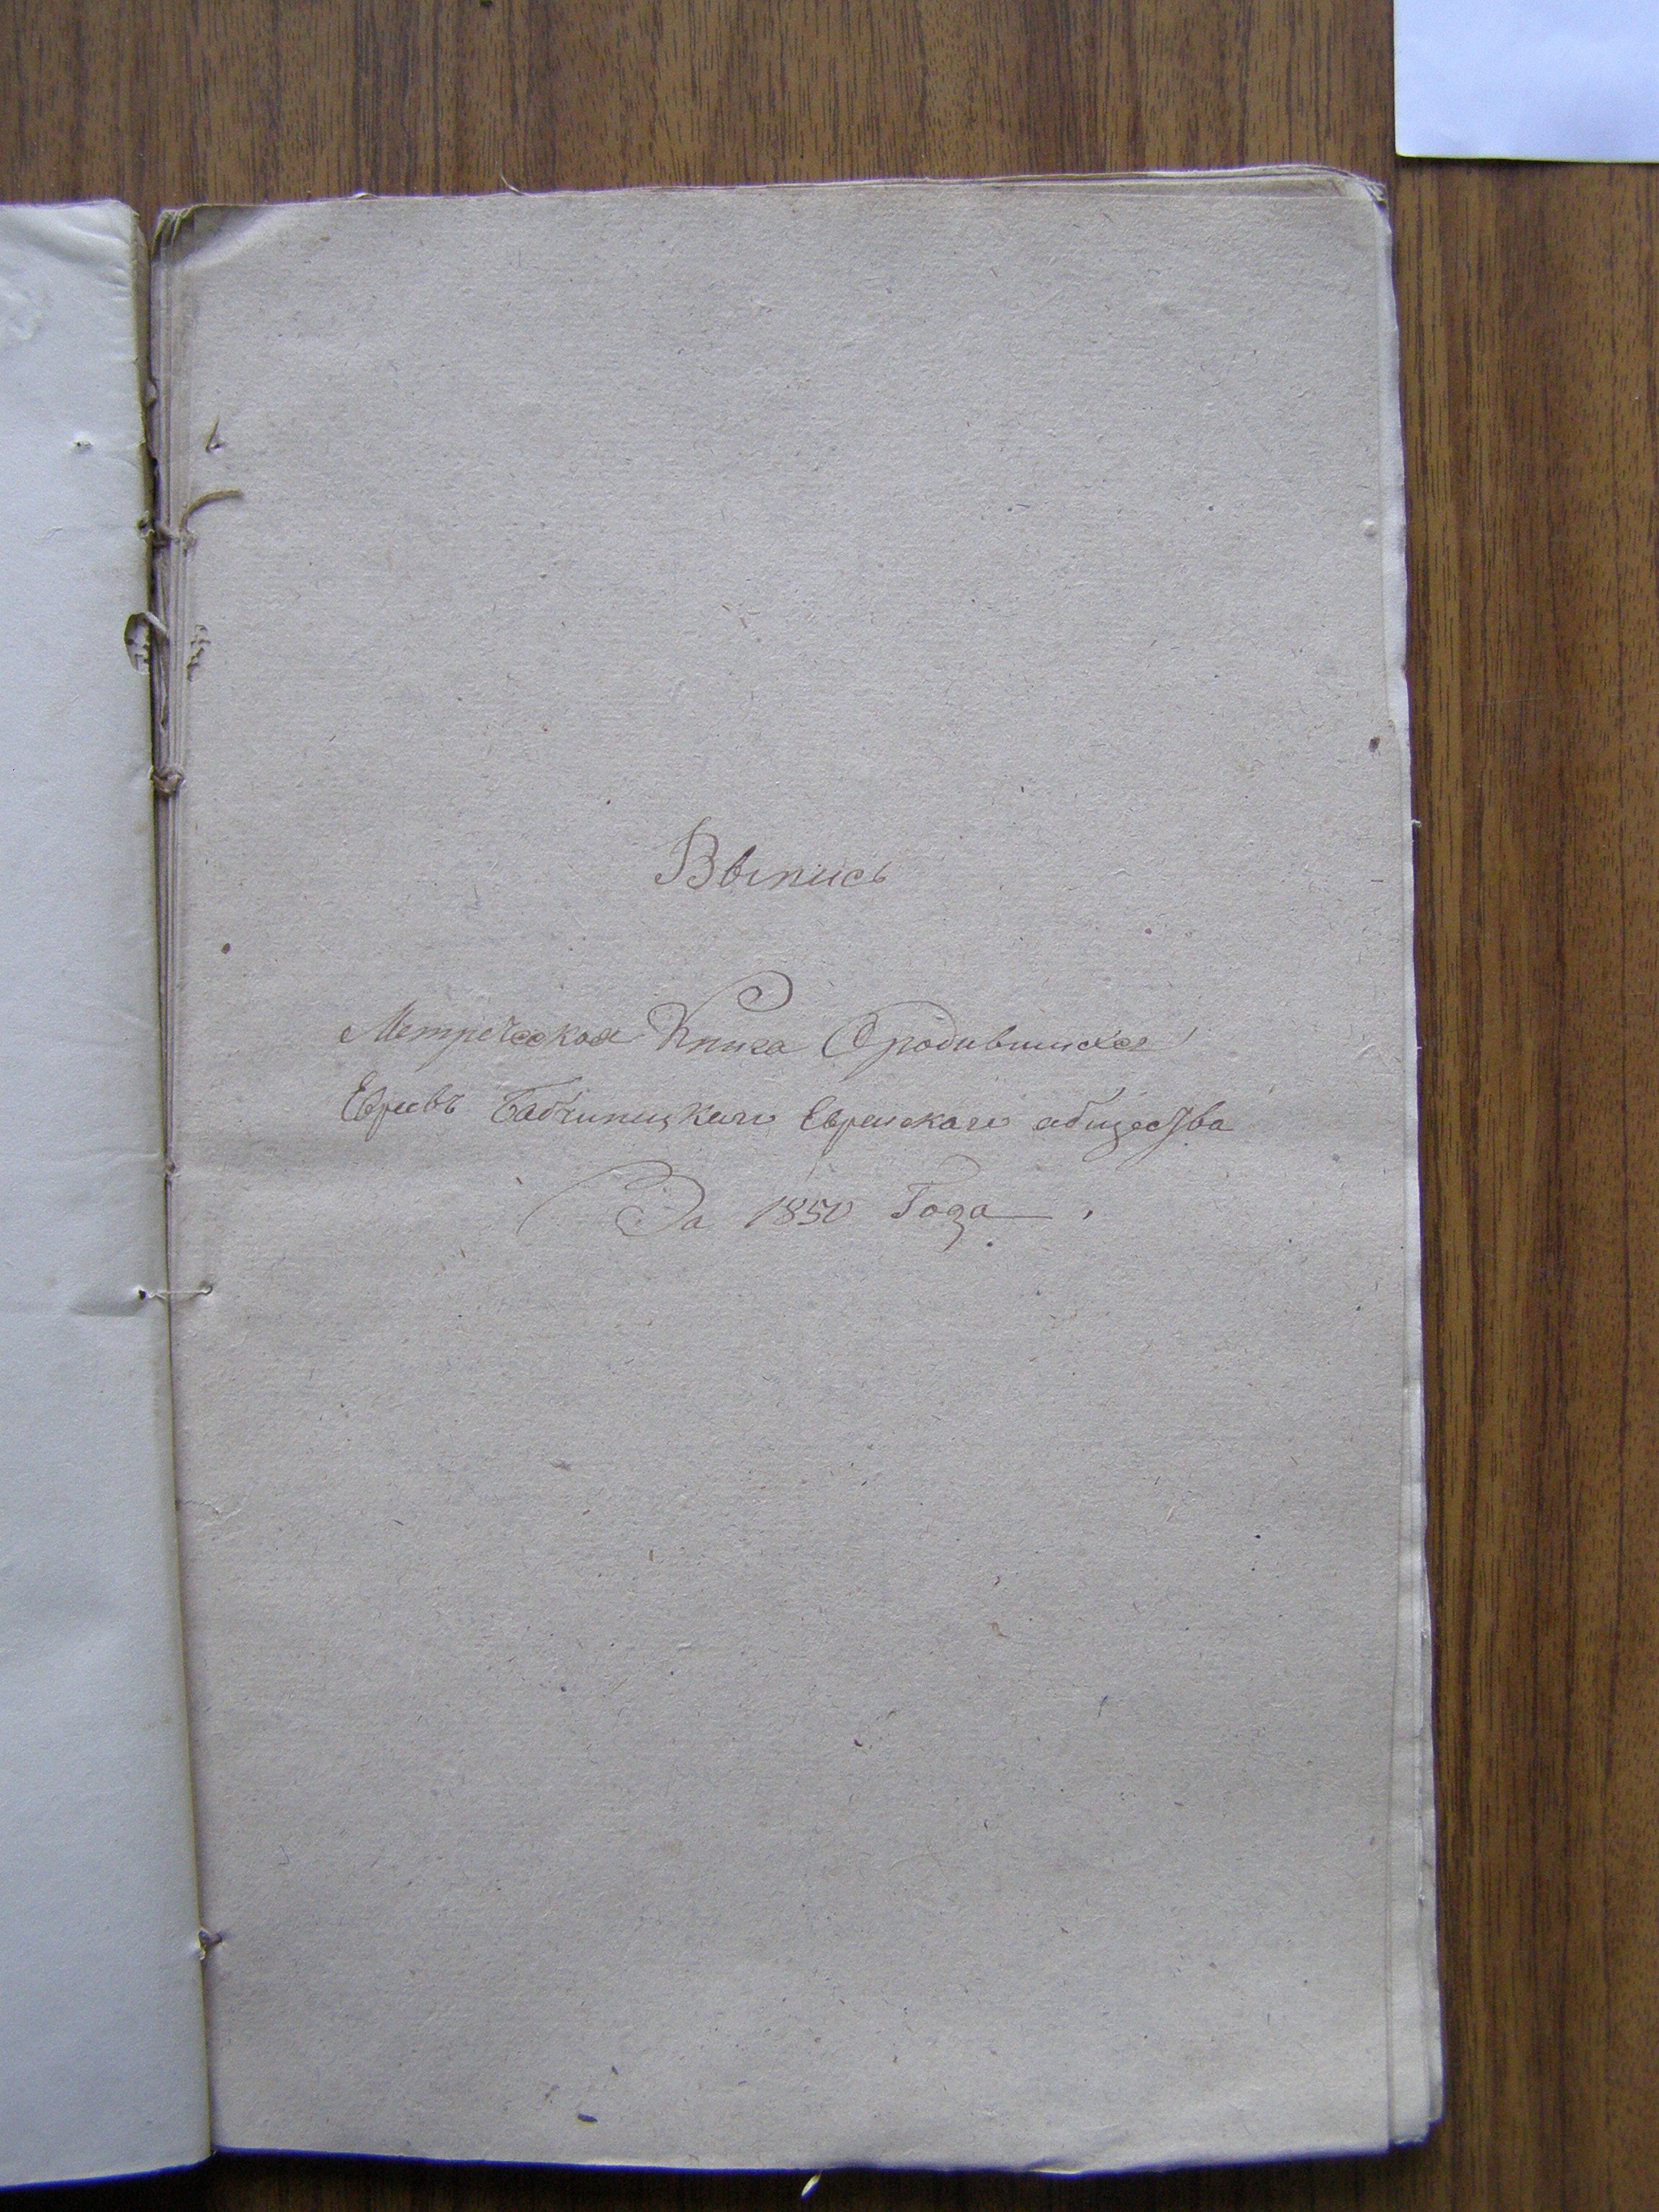 Выпись
Метрическая Книга Ородившихся
Евреевъ Бабчинецкаго Еврейскаго общества
За 1850 Года